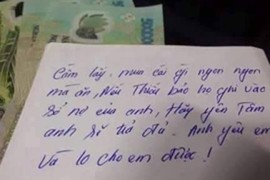 Cầm lấy, mua cái gì ngon ngon
mà ăn, Nếu Thiếu bảo họ ghi vào
Sổ nợ của anh, Hãy yên Tâm
anh sẽ trả đủ. Anh yêu em
Và lo cho em được!